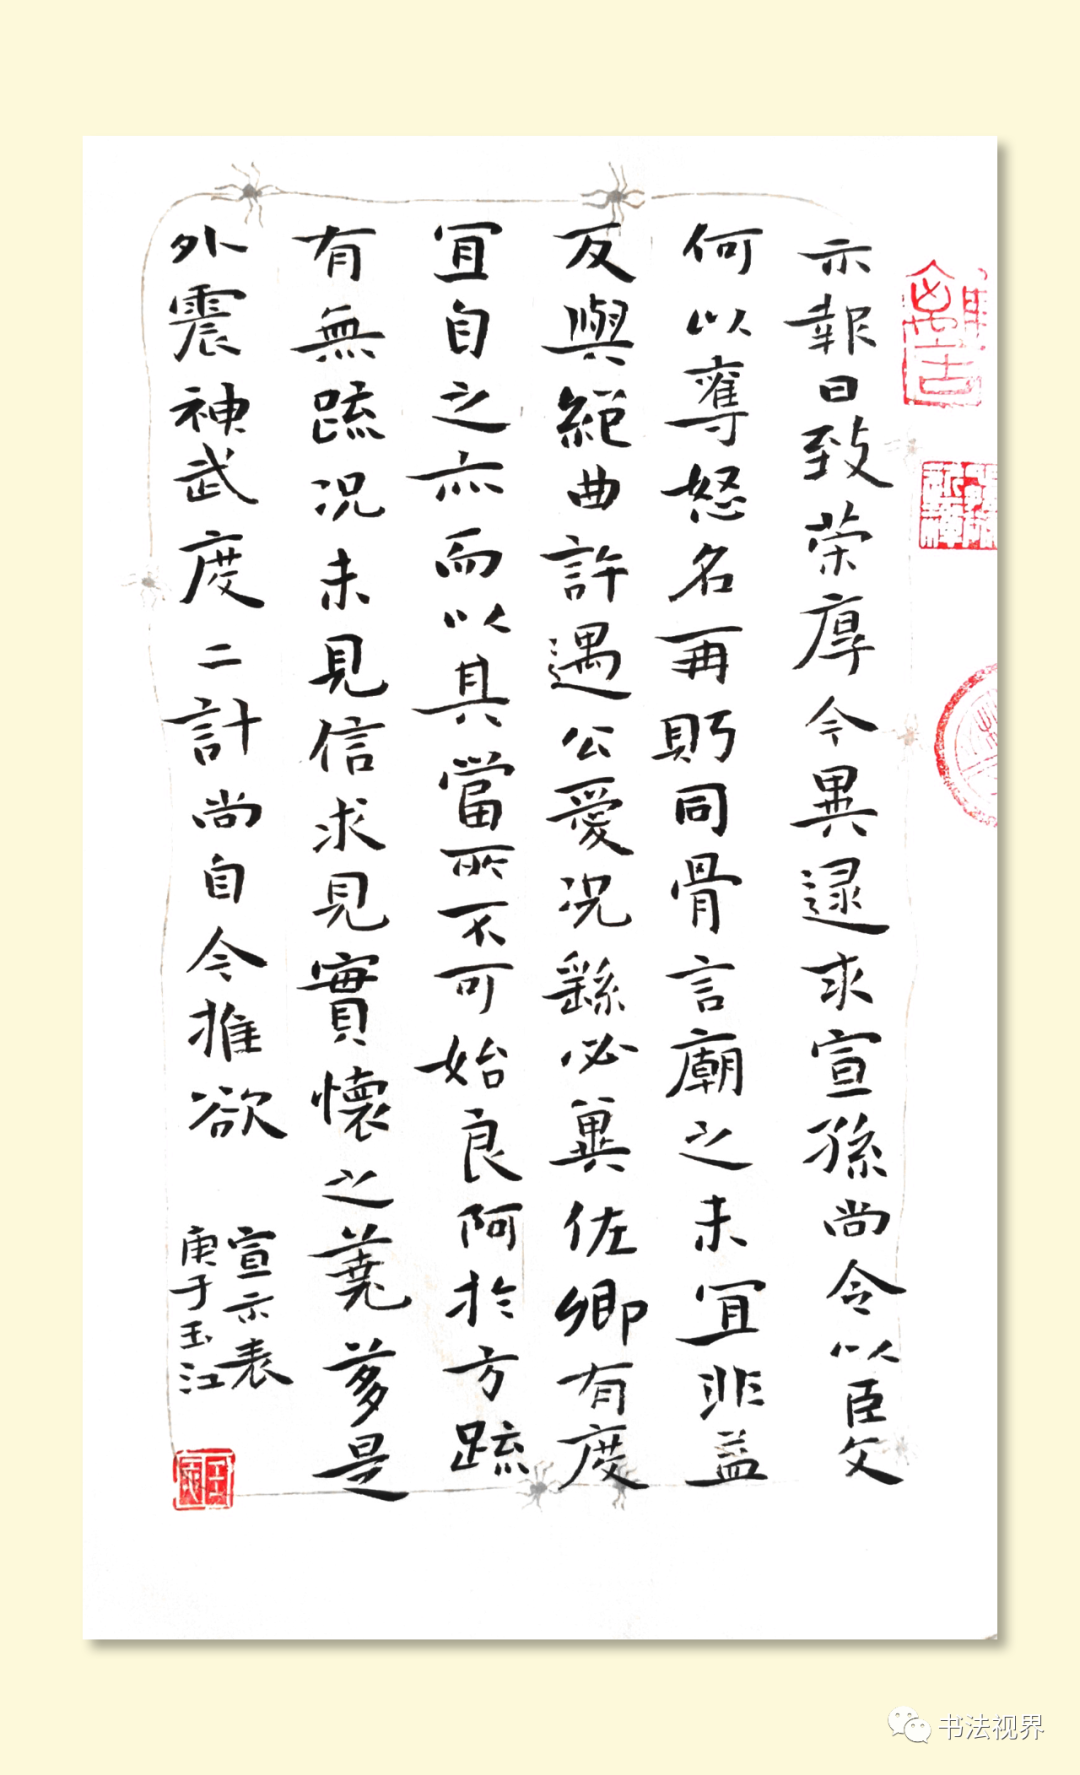 示報曰致荣厚今異逯求宣孫尚令以臣文
何以奪怒名再則同骨言廟之未宜非益
反與絕曲許遇公愛况繇必冀佐卿有度
宜自之亦而以具當所不可始良阿於方疏
有無疏况未見信求見實懷之蕘爹是
外震神武度二計尚自令推欲
宣示表
庚子玉江
书法视界